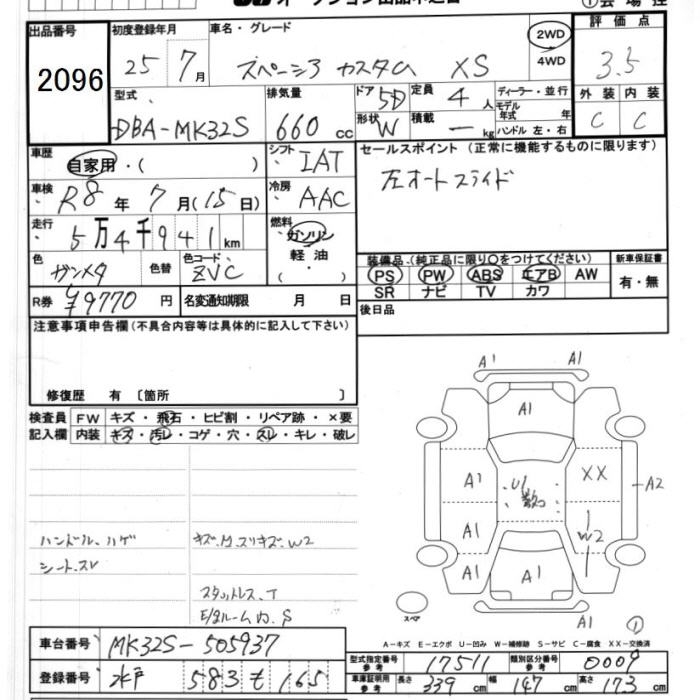 出品番号
2096
初度登録年月
25年 7月
車名・グレード
スペーシア カスタム XS
2WD
4WD
評価点
3.5
外装 内装
C C
型式
DBA-MK32S
排気量
660 cc
ドア 5D
形状 W
定員 4 人
積載 ー kg
ディーラー・並行
モデル年式 年
ハンドル 左・右
車歴
自家用・( )
シフト IAT
セールスポイント (正常に機能するものに限ります)
左オートスライド
車検
R8年 7月(15日)
冷房 AAC
走行
5万4千941km
燃料
ガソリン
軽油
色
ガンメタ
色替
色コード
ZVC
装備品・(純正品に限り○をつけてください)
PS PW ABS エアB AW
SR ナビ TV カワ
新車保証書
有・無
R券 ¥9770 円
名変通知期限 月 日
後日品
注意事項申告欄(不具合内容等は具体的に記入して下さい)
修復歴 有 〔箇所 〕
検査員記入欄
FW キズ・飛石・ヒビ割・リペア跡・×要
内装 キズ・汚レ・コゲ・穴・スレ・キレ・破レ
ハンドル、ハゲ
シート、スレ
スタットレス、T
A1 A1
A1
A1 U1 XX A2
A1 W2
A1 A1
スペア
①
A-キズ E-エクボ U-凹み W-補修跡 S-サビ C-腐食 XX-交換済
車台番号 MK32S-505937
登録番号 水戸 583 も 165
型式指定番号 参考 17511
類別区分番号 参考 0009
車庫証明用 参考 長さ 339 cm 幅 147 cm 高さ 173 cm